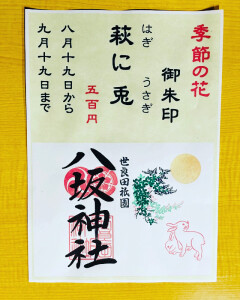 季節の花
御朱印
はぎ うさぎ
萩に兎
五百円
八月十九日から
九月十九日まで
世良田祇園
八坂神社